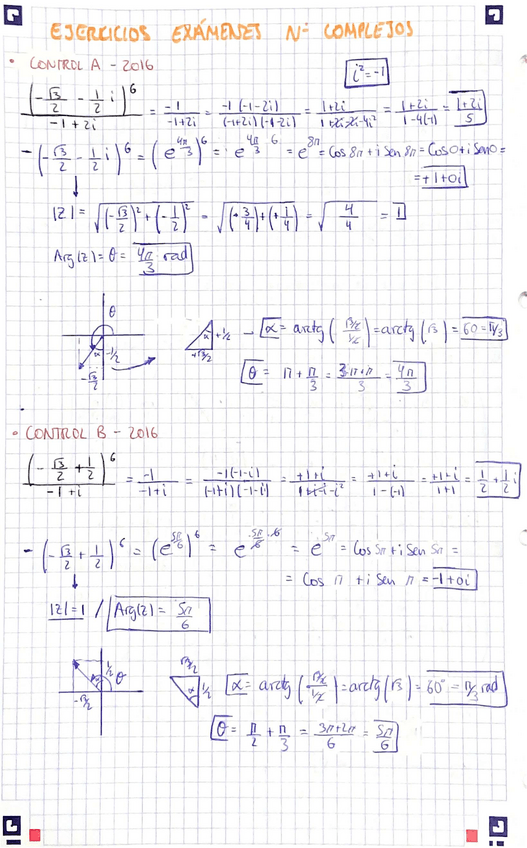 EJERCICIOS EXÁMENES Nº COMPLEJOS
• CONTROL A - 2016
i² = -1
(-√3/2 - 1/2 i)⁶ / (-1+2i) = -1/(-1+2i) = -1(-1-2i)/((-1+2i)(-1-2i)) = (1+2i)/(1+2i-2i-4i²) = (1+2i)/(1-4(-1)) = (1+2i)/5
- (-√3/2 - 1/2 i)⁶ = (e^(4π/3))⁶ = e^(4π/3 · 6) = e^(8π) = Cos 8π + i Sen 8π = Cos 0 + i Sen 0 =
= +1+0i
|z| = √((-√3/2)² + (-1/2)²) = √((+3/4)+(+1/4)) = √(4/4) = 1
Arg(z) = θ = 4π/3 rad
θ
α
-1/2
-√3/2
α
+1/2
+√3/2
→ α = arctg((√3/2)/(1/2)) = arctg(√3) = 60 = π/3
θ = π + π/3 = (3π+π)/3 = 4π/3
• CONTROL B - 2016
(-√3/2 + 1/2)⁶ / (-1+i) = -1/(-1+i) = -1(-1-i)/((-1+i)(-1-i)) = (+1+i)/(1+i-i-i²) = (+1+i)/(1-(-1)) = (+1+i)/(1+1) = 1/2 + 1/2 i
- (-√3/2 + 1/2)⁶ = (e^(5π/6))⁶ = e^(5π/6 · 6) = e^(5π) = Cos 5π + i Sen 5π =
= Cos π + i Sen π = -1+0i
|z| = 1 / Arg(z) = 5π/6
1/2
θ
-√3/2
√3/2
α
1/2
α = arctg((√3/2)/(1/2)) = arctg(√3) = 60° = π/3 rad
θ = π/2 + π/3 = (3π+2π)/6 = 5π/6